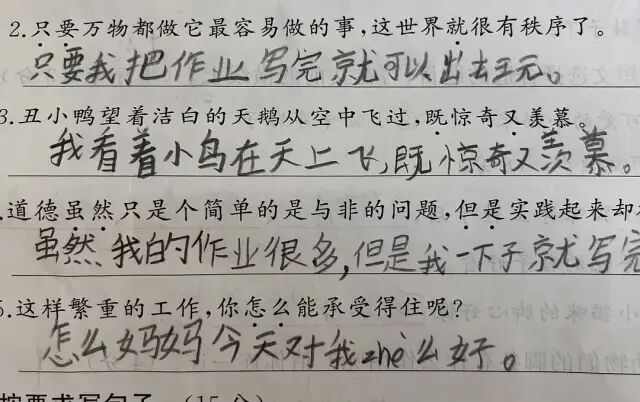 2.只要万物都做它最容易做的事,这世界就很有秩序了。
只要我把作业写完就可以出去玩。
3.丑小鸭望着洁白的天鹅从空中飞过,既惊奇又羡慕。
我看着小鸟在天上飞,既惊奇又羡慕。
.道德虽然只是个简单的是与非的问题,但是实践起来却
虽然我的作业很多,但是我一下子就写完
5.这样繁重的工作,你怎么能承受得住呢?
怎么妈妈今天对我zhè么好。
按要求写句子。(15分)